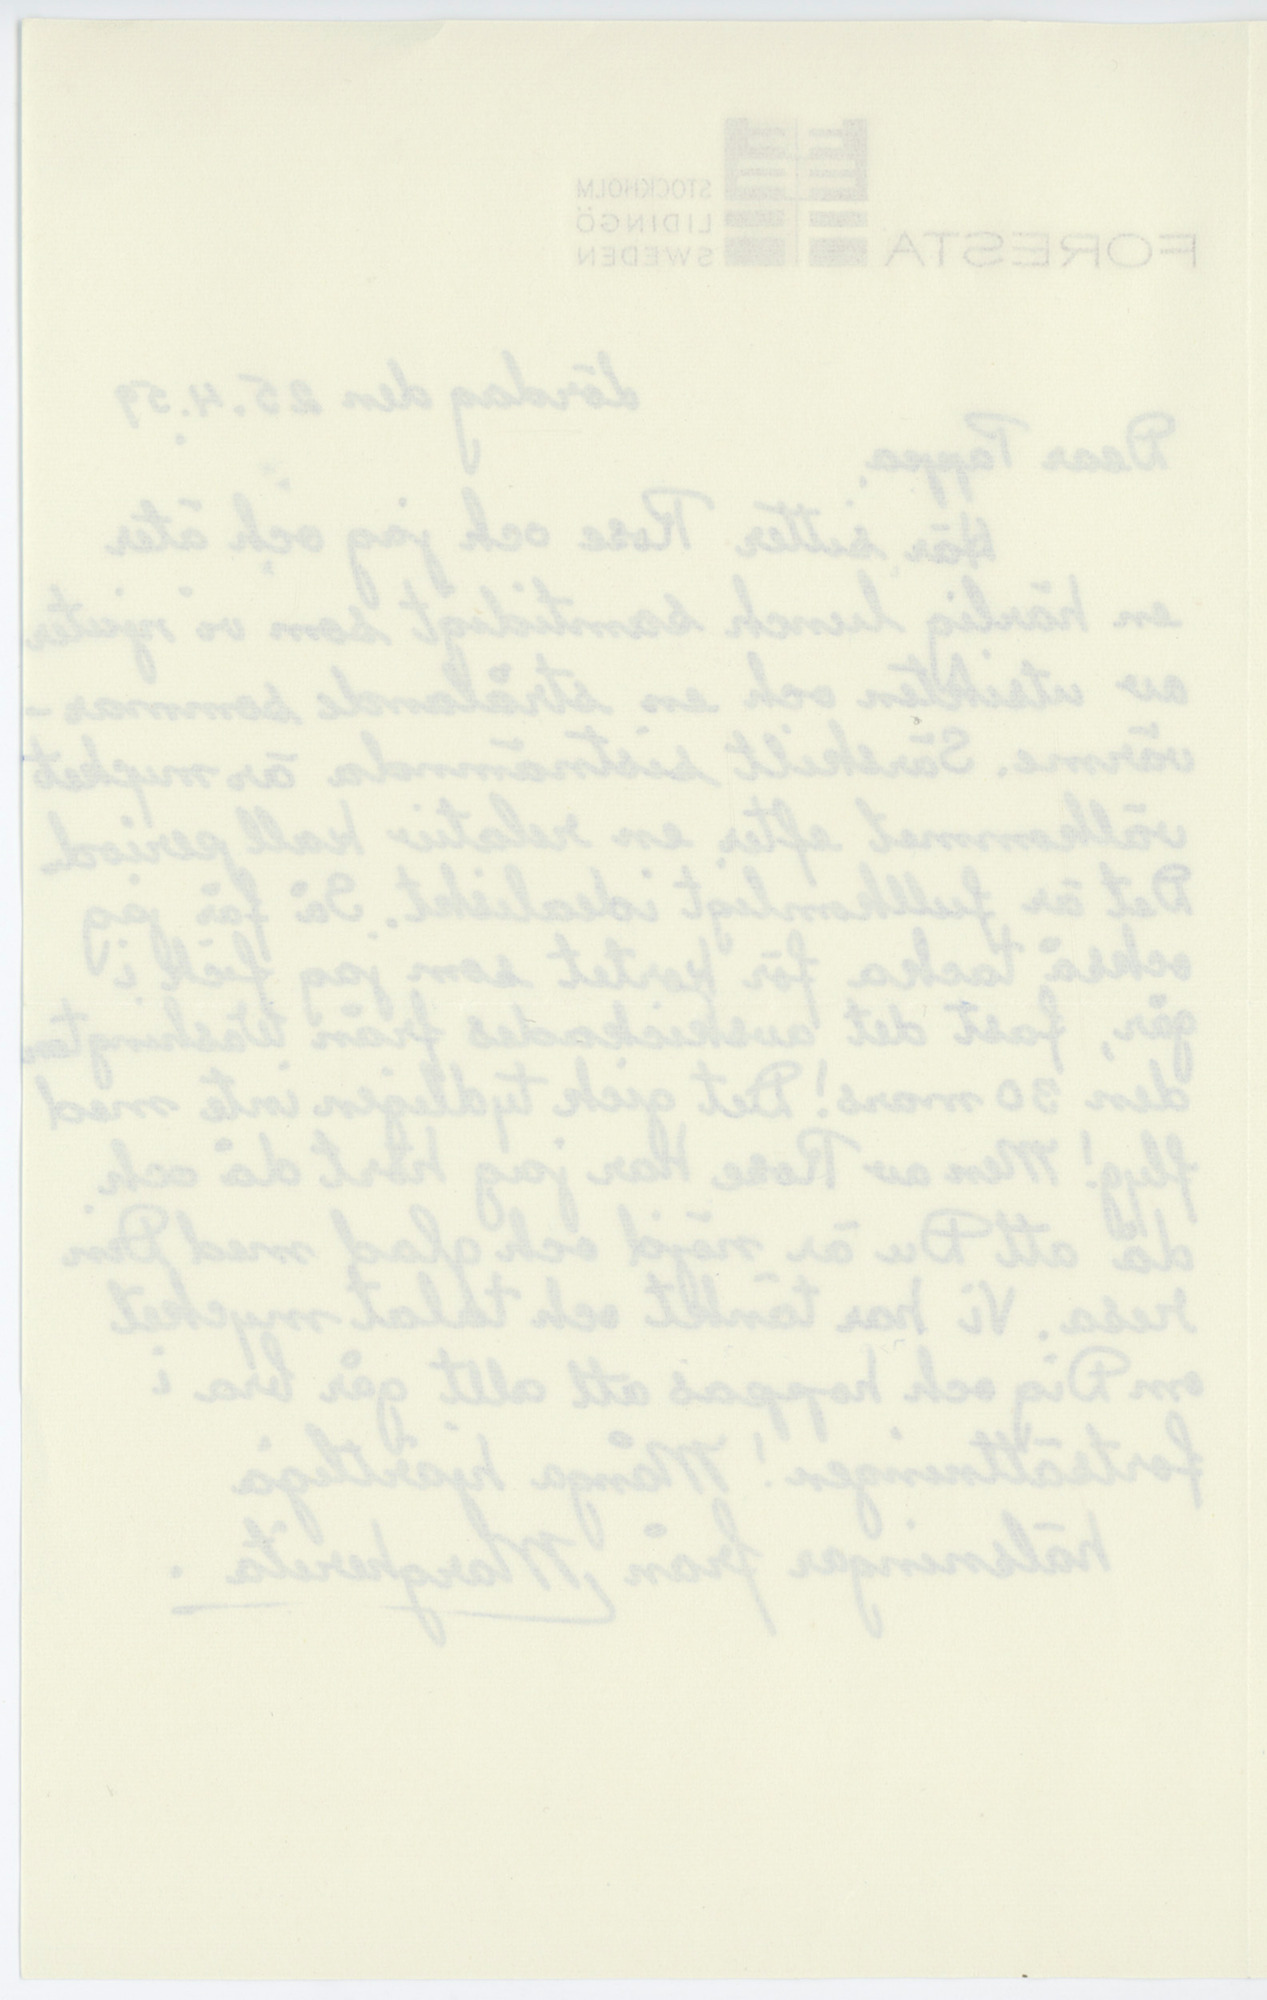 FORESTA
STOCKHOLM
LIDINGÖ
SWEDEN
Lördag den 25.4.59.
Dear Pappa,
Här sitter Rose och jag och äter
en härlig lunch samtidigt som vi njuter
av utsikten och en strålande sommar-
värme. Särskilt sistnämnda är mycket
välkommet efter en relativ kall period.
Det är fullkomligt idealiskt. Så får jag
också tacka för kortet som jag fick i
går, fast det avskickades från Washington
den 30 mars! Det gick tydligen inte med
flyg! Men av Rose har jag hört då och
då att Du är nöjd och glad med Din
resa. Vi har tänkt och talat mycket
om Dig och hoppas att allt går bra i
fortsättningen! Många hjärtliga
hälsningar från Margherita.